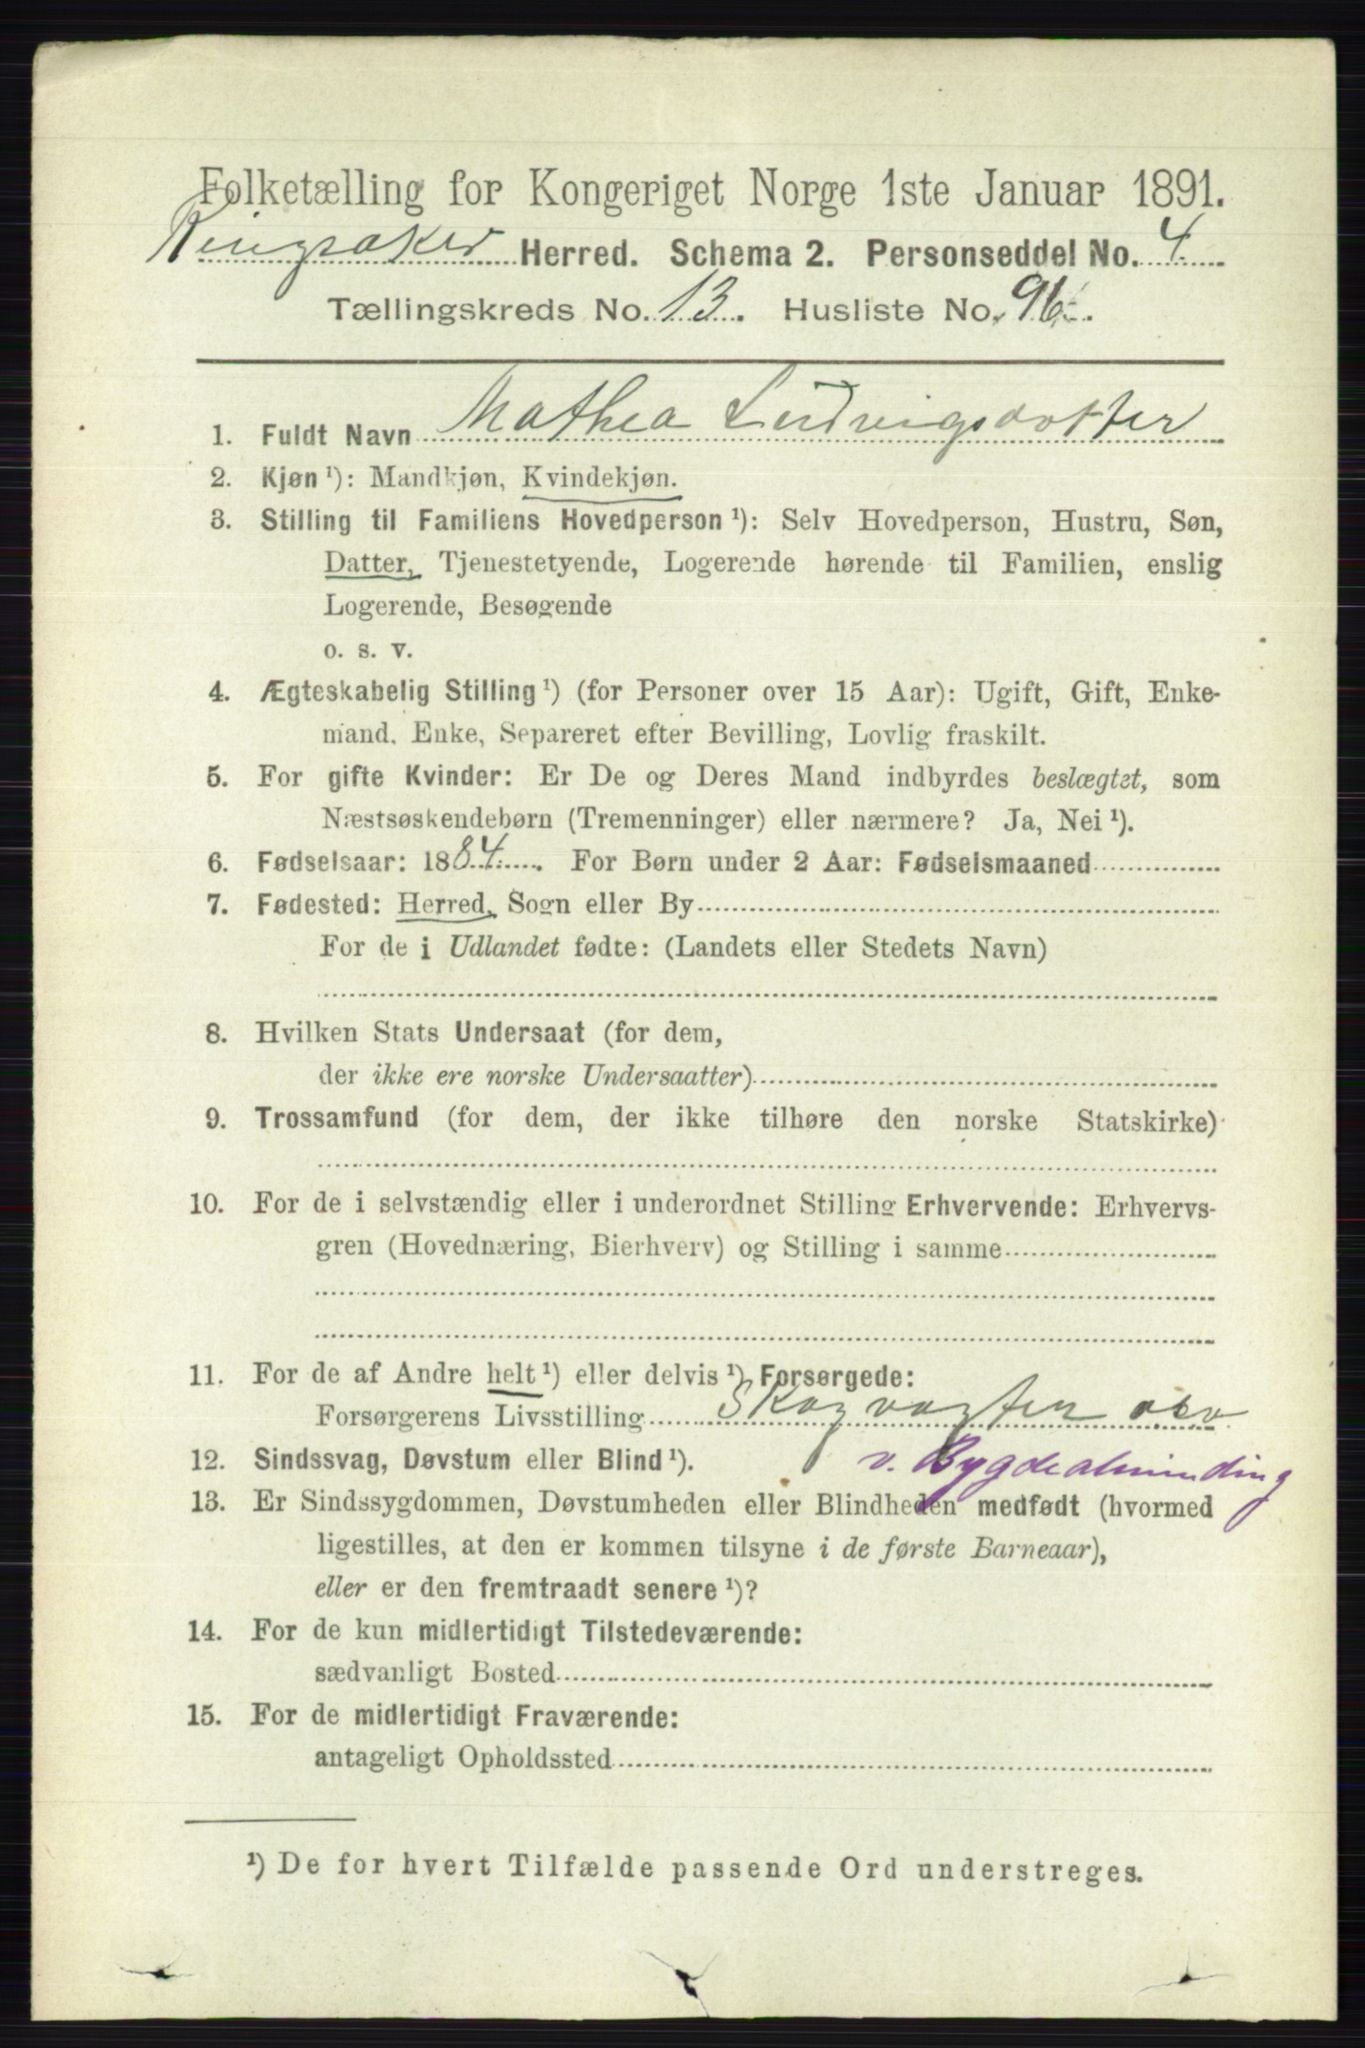 Folketælling for Kongeriget Norge 1ste Januar 1891.
Ringsaker Herred. Schema 2. Personseddel No. 4
Tællingskreds No. 13. Husliste No. 96.
1. Fuldt Navn Mathea Ludvigsdotter
2. Kjøn ¹): Mandkjøn, Kvindekjøn.
3. Stilling til Familiens Hovedperson ¹): Selv Hovedperson, Hustru, Søn,
Datter, Tjenestetyende, Logerende hørende til Familien, enslig
Logerende, Besøgende
o. s. v.
4. Ægteskabelig Stilling ¹) (for Personer over 15 Aar): Ugift, Gift, Enke-
mand, Enke, Separeret efter Bevilling, Lovlig fraskilt.
5. For gifte Kvinder: Er De og Deres Mand indbyrdes beslægtet, som
Næstsøskendebørn (Tremenninger) eller nærmere? Ja, Nei ¹).
6. Fødselsaar: 1884. For Børn under 2 Aar: Fødselsmaaned
7. Fødested: Herred, Sogn eller By
For de i Udlandet fødte: (Landets eller Stedets Navn)
8. Hvilken Stats Undersaat (for dem,
der ikke ere norske Undersaatter)
9. Trossamfund (for dem, der ikke tilhøre den norske Statskirke)
10. For de i selvstændig eller i underordnet Stilling Erhvervende: Erhvervs-
gren (Hovednæring, Bierhverv) og Stilling i samme
11. For de af Andre helt ¹) eller delvis ¹) Forsørgede:
Forsørgerens Livsstilling Skogvogter osv
12. Sindssvag, Døvstum eller Blind ¹). v. Bygdealminding
13. Er Sindssygdommen, Døvstumheden eller Blindheden medfødt (hvormed
ligestilles, at den er kommen tilsyne i de første Barneaar),
eller er den fremtraadt senere ¹)?
14. For de kun midlertidigt Tilstedeværende:
sædvanligt Bosted
15. For de midlertidigt Fraværende:
antageligt Opholdssted
¹) De for hvert Tilfælde passende Ord understreges.